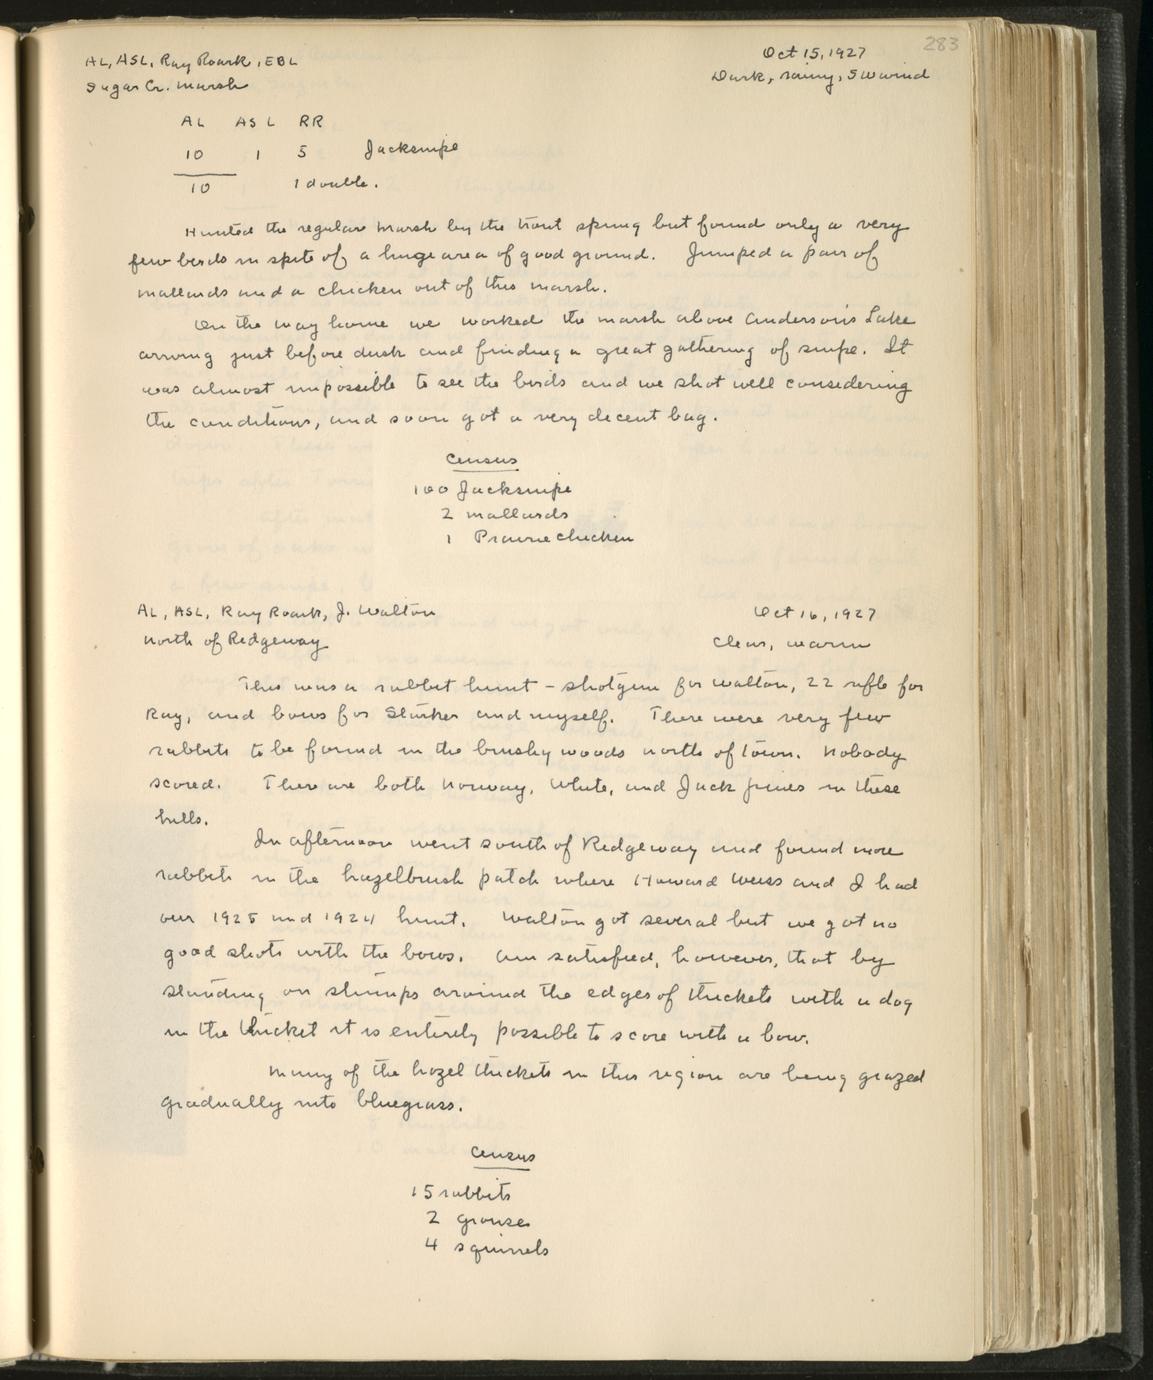 283
AL, ASL, Ray Roark, EBL
Oct 15, 1927
Sugar Cr. Marsh
Dark, rainy, SW wind
AL ASL RR
10 1 5 Jacksnipe
10 1 double.
Hunted the regular marsh by the trout spring but found only a very
few birds in spite of a huge area of good ground. Jumped a pair of
mallards and a chicken out of this marsh.
On the way home we worked the marsh above Anderson's Lake
arriving just before dusk and finding a great gathering of snipe. It
was almost impossible to see the birds and we shot well considering
the conditions, and soon got a very decent bag.
Census
100 Jacksnipe
2 mallards
1 Prairie chicken
AL, ASL, Ray Roark, J. Walton
Oct 16, 1927
North of Ridgeway
Clear, warm
This was a rabbit hunt - shotgun for Walton, 22 rifle for
Ray, and bows for Starker and myself. There were very few
rabbits to be found in the brushy woods north of town. Nobody
scored. There are both Norway, White, and Jack pines in these
hills.
In afternoon went south of Ridgeway and found more
rabbits in the hazelbrush patch where Howard Weiss and I had
our 1925 and 1924 hunt. Walton got several but we got no
good shots with the bows. Am satisfied, however, that by
standing on stumps around the edges of thickets with a dog
in the thicket it is entirely possible to score with a bow.
Many of the hazel thickets in this region are being grazed
gradually into bluegrass.
Census
15 rabbits
2 grouse
4 squirrels